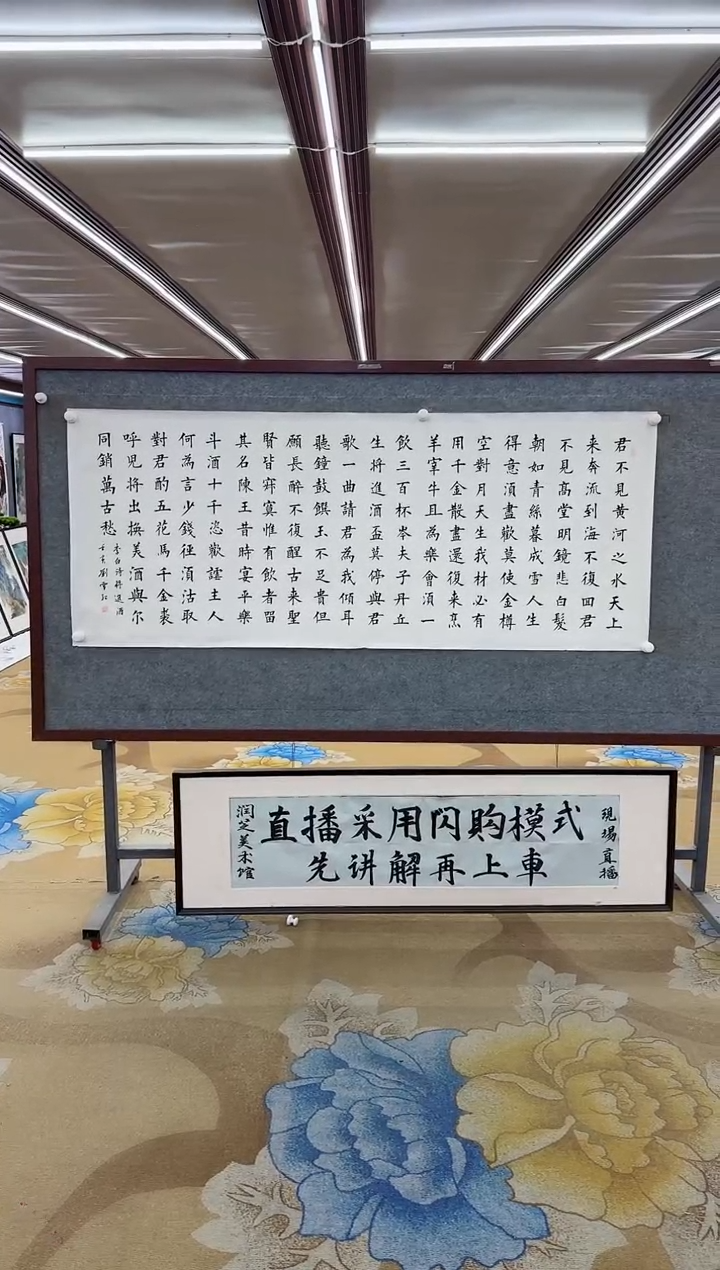 君不見黃河之水天上
来奔流到海不復回君
不見高堂明鏡悲白髮
朝如青絲暮成雪人生
得意須盡歡莫使金樽
空對月天生我材必有
用千金散盡還復来烹
羊宰牛且為樂會須一
飲三百杯岑夫子丹丘
生將進酒盃莫停與君
歌一曲請君為我傾耳
聽鐘鼓饌玉不足貴但
願長醉不復醒古来聖
賢皆寂寞惟有飲者留
其名陳王昔時宴平樂
斗酒十千恣歡謔主人
何為言少錢徑須沽取
對君酌五花馬千金裘
呼児將出換美酒與尔
同銷萬古愁
李白诗將進酒
現場直播
直播采用闪购模式
先讲解再上車
润芝美术馆